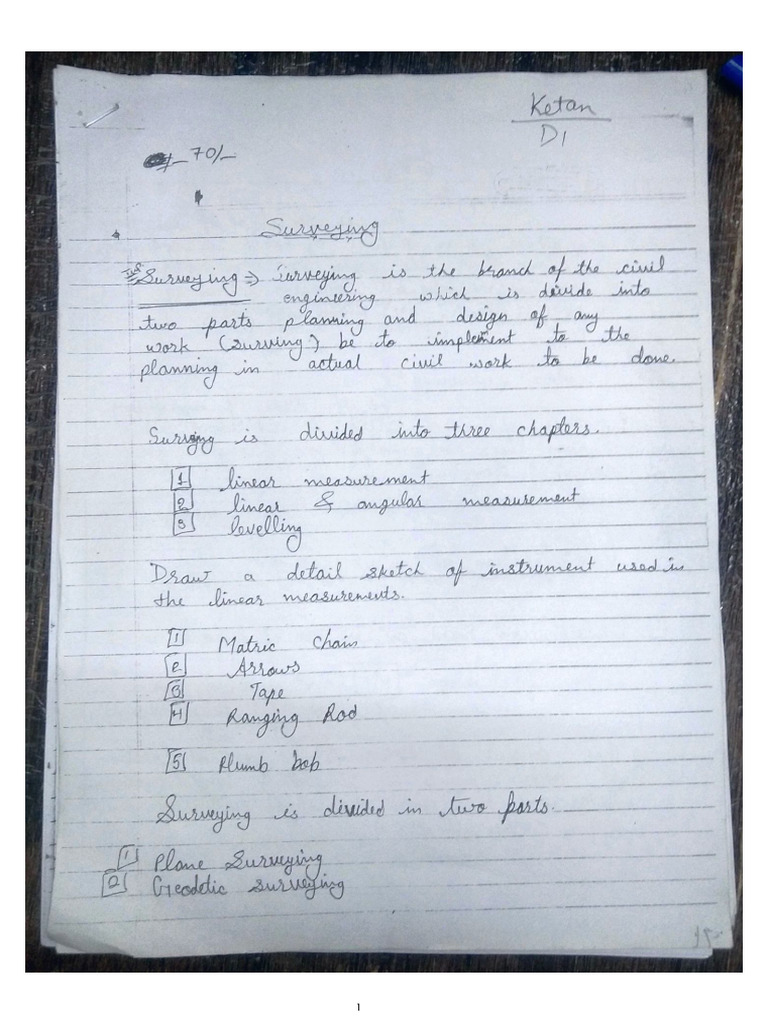 Ketan
D1
70/-
Surveying
Surveying ⇒ Surveying is the branch of the civil
engineering which is divide into
two parts planning and design of any
work (surving) be to implement to the
planning in actual civil work to be done.
Surveying is divided into three chapters.
1 linear measurement
2 linear & angular measurement
3 levelling
Draw a detail sketch of instrument used in
the linear measurements.
1 Matric Chain
2 Arrows
3 Tape
4 Ranging Rod
5 Plumb bob
Surveying is divided in two parts.
1 Plane Surveying
2 Geodetic surveying
1